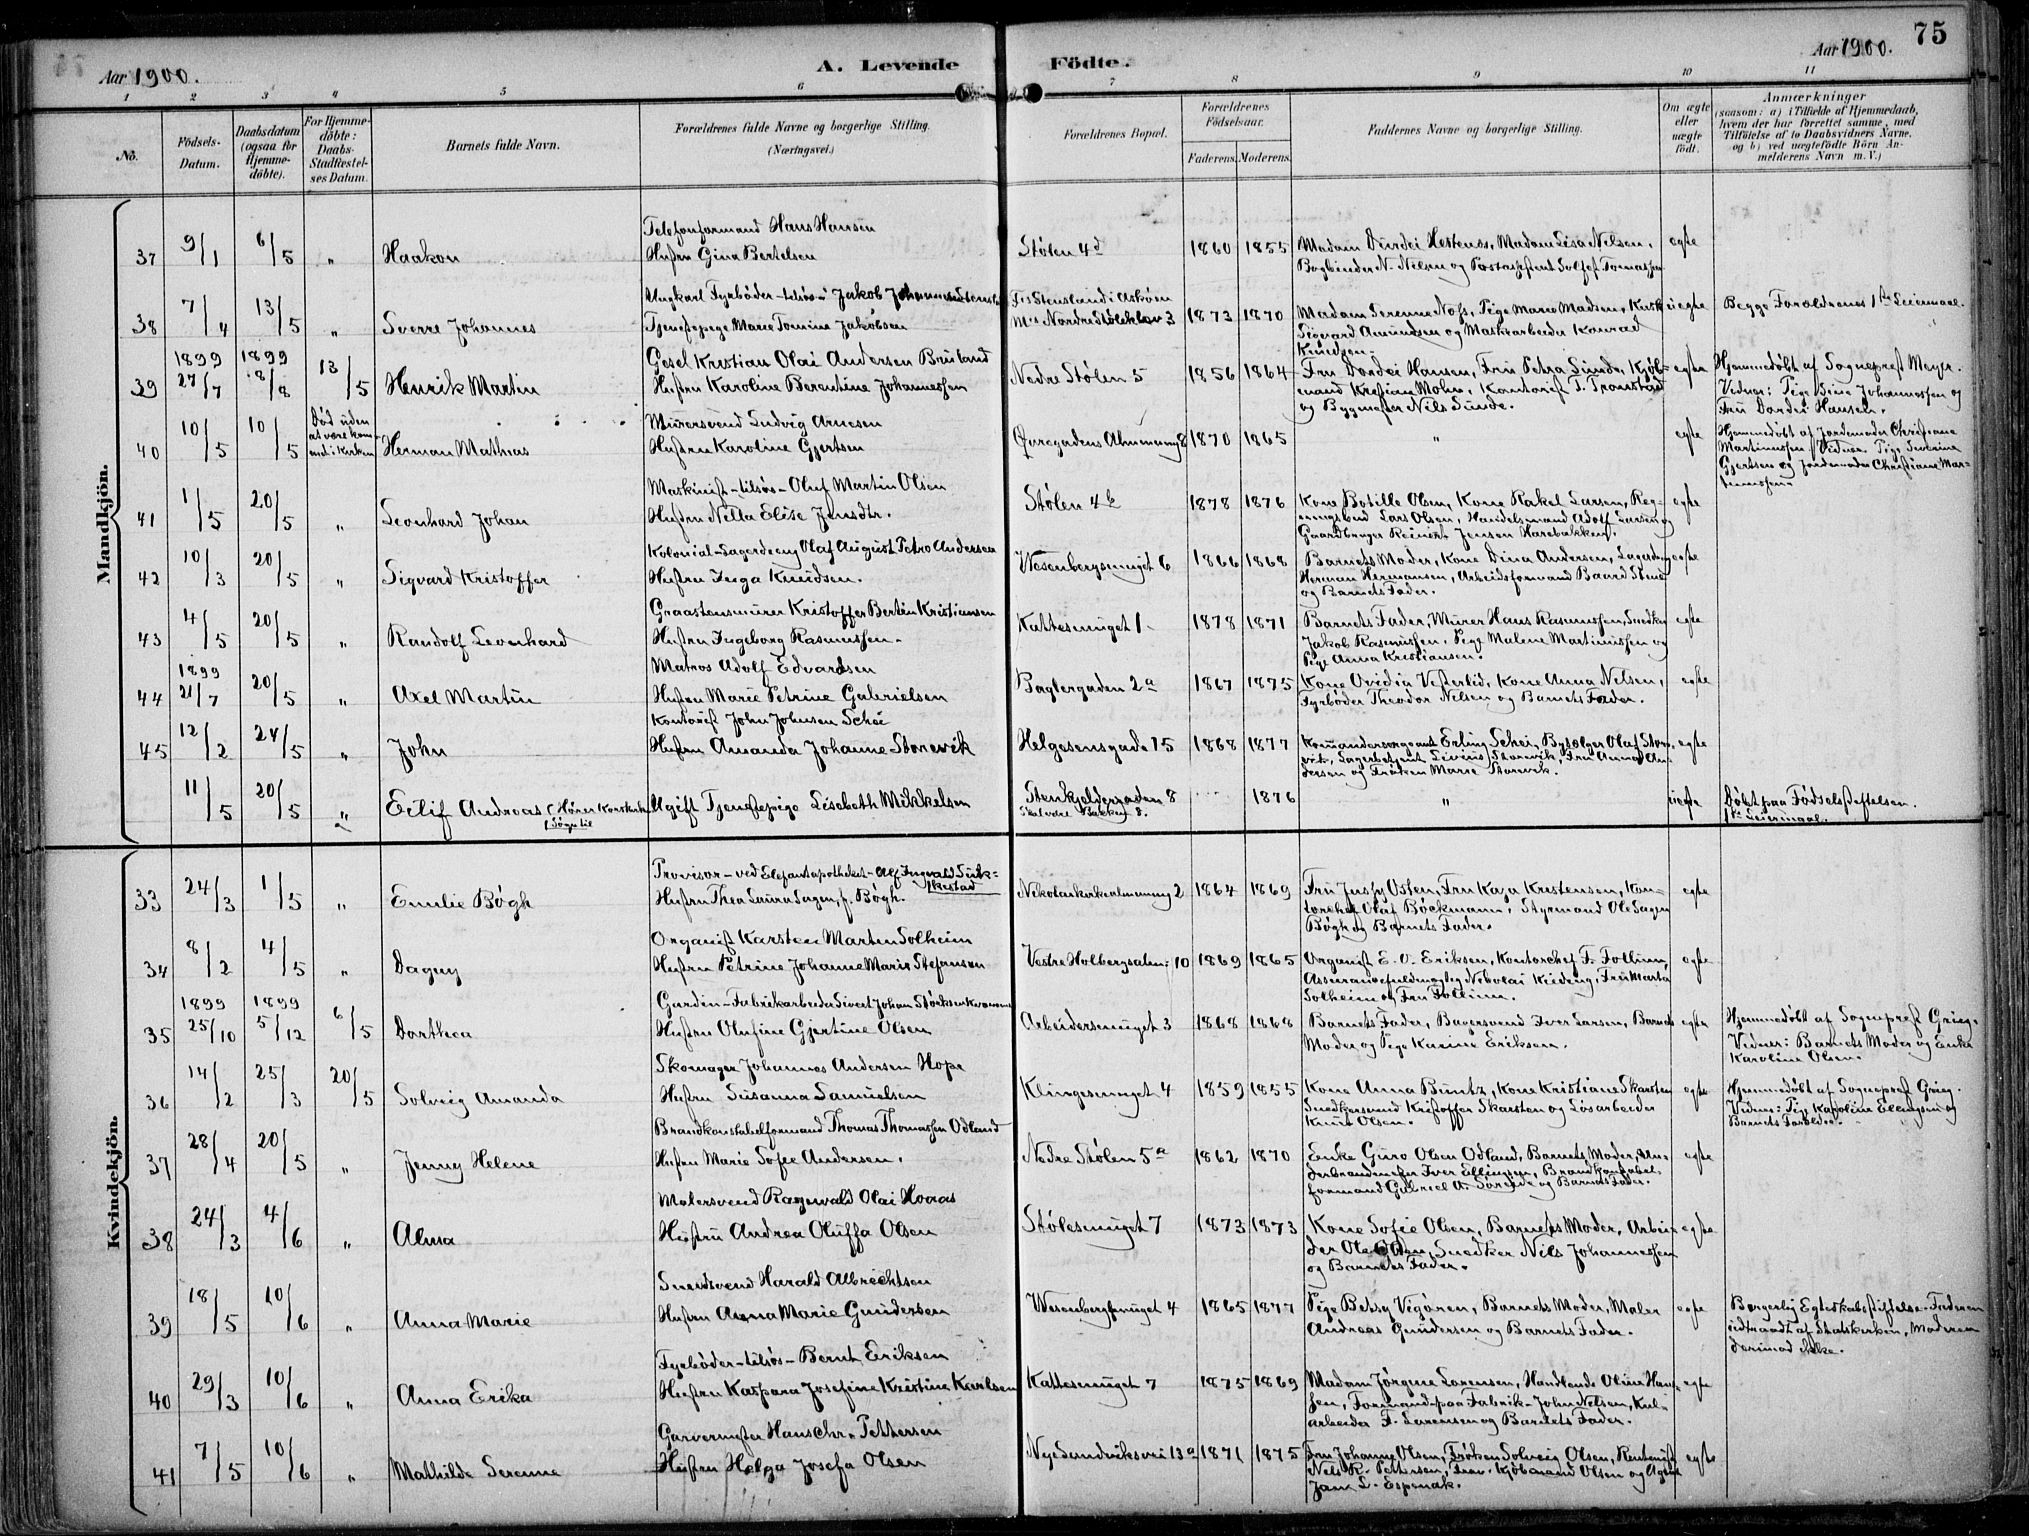 75
Aar 1900.
A. Levende Födte.
Aar 1900.
1 2 3 4 5 6 7 8 9 10 11
No.
Födsels-Datum.
Daabsdatum (ogsaa for Hjemme-döbte).
For Hjemme-döbte: Daabs-Stadfæstel-ses Datum.
Barnets fulde Navn.
Forældrenes fulde Navne og borgerlige Stilling.
(Næringsvei.)
Forældrenes Bopæl.
Forældrenes Födselsaar.
Faderens. Moderens.
Faddernes Navne og borgerlige Stilling.
Om ægte eller uægte födt.
Anmærkninger
(saasom: a) i Tilfælde af Hjemmedaab, hvem der har forrettet samme, med Tilföielse af to Daabsvidners Navne. og b) ved uægtefödte Börn An-melderens Navn m. V.)
Mandkjön.
Telefonformand Hans Hansen
37 9/1 6/5 " Haakon Hustru Gina Bertelsen Stølen 4d 1860 1855 Madam Hestenes, Madam Lisa Nilsen, egte
Bogbinder N. Nilsen og
Ungkarl Fyrbøder - tilsøs - Jakob
38 7/4 13/5 " Sverre Johannes Tjenestepige Marie Tomine Jakobsen 1873 1870 Madam Serenne Næss, Pige Marie Madsen, uegte Begge Forældrenes 1ste Leiermaal.
Sigvard Amundsen og Maskinarbeider Konrad
Knudsen.
1899 1899 Gesel Kristian Olai Andersen Bruland
39 27/7 18/8 13/5 Henrik Martin Hustru Karoline Berentine Johannessen Nedre Stølen 5 1856 1864 Fru Dordei Hansen, Fru Petra Sunde, Kjøb- egte Hjemmedøbt af Sogneprest Meyer.
mand Kristian Mohn, Kontorist T. Tronstad
og Bygmester Nils Sunde.
Vidner: Pige Sina Johannessen og
Fru Dordei Hansen.
Død uden at være kom-met i kirken
Murersvend Ludvig Arnesen
40 10/5 10/5 Herman Mathias Hustru Karoline Gjertsen Øvregadens Almenning 8 1870 1865 " egte
Hjemmedøbt af Jordemoder Christiane
Martinussen. Vidner Pige Severine
Gjertsen og Jordemoder Christiane Mar-
tinussen
Maskinist - tilsøs - Oluf Martin Olsen
41 1/5 20/5 " Leonhard Johan Hustru Nilla Elise Jensdtr. Stølen 4b 1878 1876 Kone Botille Olsen, Kone Rakel Larsen, Reg- egte
Lars Olsen, Handelsmand Adolf Larsen og
Gaardbruger Reinert Jensen Harebakken.
Kolonial-Lagerdreng Olaf August Petro Andersen
42 10/3 20/5 " Sigvard Kristoffer Hustru Inga Knudsen. Wesenbergsmuget 6 1866 1868 Barnets Moder, Kone Dina Andersen, egte
Herman Hermansen, Arbeidsformand Baard
og Barnets Fader.
Graastensmurer Kristoffer Bertin Kristiansen
43 4/5 20/5 " Randolf Leonhard Hustru Ingeborg Rasmussen. Kattesmuget 1 1878 1871 Barnets Fader, Murer Hans Rasmussen, Snedker egte
Jakob Rasmussen, Pige Malene Martinussen og
Pige Anna Kristiansen.
1899 Matros Adolf Edvardsen
44 21/7 20/5 " Axel Martin Hustru Marie Petrine Gabrielsen Baglergaden 2a 1867 1875 Kone Ovidia Vesterlid, Kone Anna Nelsen, egte
Fyrbøder Theodor Nelsen og Barnets Fader.
Kontorist John Johnsen Schei
45 12/2 24/5 " John Hustru Amanda Johanne Storevik Helgesensgade 15 1868 1877 Kommandersergeant Erling Schei, Olaf Store- egte
vik, Lagerbetjent Livius Storevik, Fru Anna An-
dersen og Frøken Marie Storevik.
11/5 20/5 " Eilif Andreas (Hører Korskirke Sogn til Ugift Tjenestepige Lisebeth Mikkelsen Stenkjeldergaden 8 1876 " uegte Døbt paa Fødselsstiftelsen.
Skalvere Bakken 8.
1ste Leiermaal.
Kvindekjön.
Provisor - ved Elefantapotheket - Alf Ingvald
33 24/3 1/5 " Emilie Bøgh Hustru Thea Laura Sagen, f. Bøgh. Nikolaikirkealmenning 2 1864 1869 Fru Jussy Osten, Fru Kaja Kristensen, Kon- egte
torchef Olaf Bøckmann, Styrmand Ole Sagen
Bøgh og Barnets Fader.
Organist Karsten Martin Solheim
34 8/2 4/5 " Dagny Hustru Petrine Johanne Marie Stefansen Vestre Holbergsalm: 10 1869 1865 Organist E. O. Eriksen, Kontorchef F. Follinn, egte
Assurancefuldmægtig Nikolai Kieding, Fru Marta
Solheim og Fru Follinn.
1899 1899 Gardin-Fabrikarbeider Sivert Johan
35 25/10 5/12 6/5 Dorthea Hustru Olufine Gjertine Olsen Arbeidersmuget 3 1868 1868 Barnets Fader, Bagersvend Iver Larsen, Barnets egte Hjemmedøbt af Sogneprest Grieg.
Moder og Pige Karine Eriksen.
Vidner: Barnets Moder og Enke
Karoline Olsen.
Skomager Johannes Andersen Hope
36 14/2 25/3 20/5 Solveig Amanda Hustru Susanna Samuelsen Klingesmuget 4 1859 1855 Kone Anna Buntz, Kone Kristiane Skarsten egte Hjemmedøbt af Sogneprest Grieg.
Snedkersvend Kristoffer Skarsten og Løsarbeider
Knut Olsen.
Vidner: Pige Karoline Ellingsen og
Barnets Forældre.
Brandkonstabelformand Thomas Thomassen Odland
37 28/4 20/5 " Jenny Helene Hustru Marie Sofie Andersen. Nedre Stølen 5a 1862 1870 Enke Guro Olsen Odland, Barnets Moder, Un- egte
derbrandmester Iver Ellingsen, Brandkonstabel-
formand Gabriel A. Søreide og Barnets Fader.
Malersvend Ragnvald Olai Hoaas
38 24/3 4/6 " Alma Hustru Andrea Oluffa Olsen Stølesmuget 7 1873 1873 Kone Sofie Olsen, Barnets Moder, Arbei- egte
der Ole Olsen, Snedker Nils Johannessen
og Barnets Fader.
Smedsvend Harald Albrechtsen
39 18/5 10/6 " Anna Marie Hustru Anna Marie Gundersen Wesenbergsmuget 4 1865 1877 Pige Betsy Vigøren, Barnets Moder, Maler egte Borgerlig Egteskabsstiftelse. Faderen
Andreas Gundersen og Barnets Fader.
udtraadt af Statskirken, Moderen
derimod ikke.
Fyrbøder - tilsøs - Bernt Eriksen
40 29/3 10/6 " Anna Erika Hustru Kaspara Josefine Kristine Karlsen Kattesmuget 7 1875 1869 Madam Jørgine Lorensen, Handlende Oline Han- egte
sen, Formand paa Fabrik - John Nelsen, Kul-
arbeider F. Lorensen og Barnets Fader.
Garvermester Hans Chr. Pettersen
41 7/5 10/6 " Mathilde Serenne Hustru Helga Josefa Olsen Nye Sandviksvei 13a 1871 1875 Fru Johanne Olsen, Frøken Solveig Olsen, egte
Nels R. Pettersen, Kjøbmand Olsen og Agent
Jan L. Espenak.